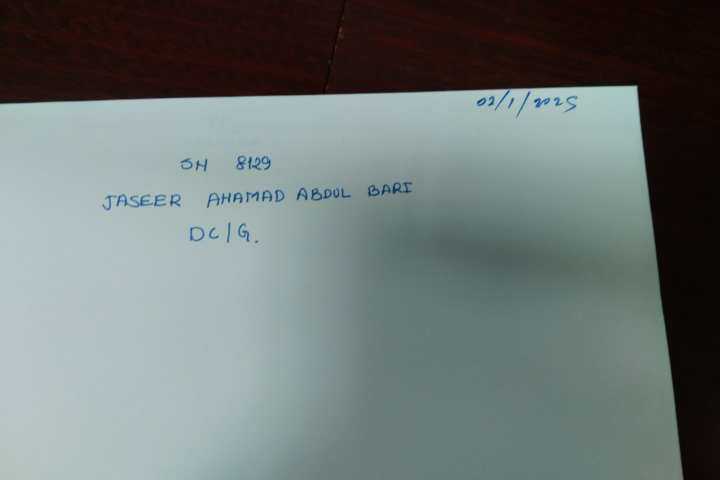 02/1/2025
SN 8129
JASEER AHAMAD ABDUL BARI
DC/G.